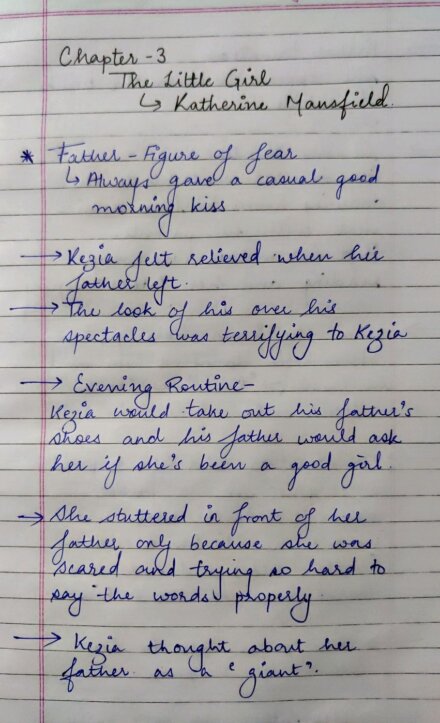 Chapter - 3
The Little Girl
↳ Katherine Mansfield.
* Father - Figure of fear
↳ Always gave a casual good
morning kiss
→ Kezia felt relieved when his
father left.
→ The look of his over his
spectacles was terrifying to Kezia
→ Evening Routine-
Kezia would take out his father's
shoes and his father would ask
her if she's been a good girl.
→ She stuttered in front of her
father only because she was
scared and trying so hard to
say the words properly
→ Kezia thought about her
father as a "giant".